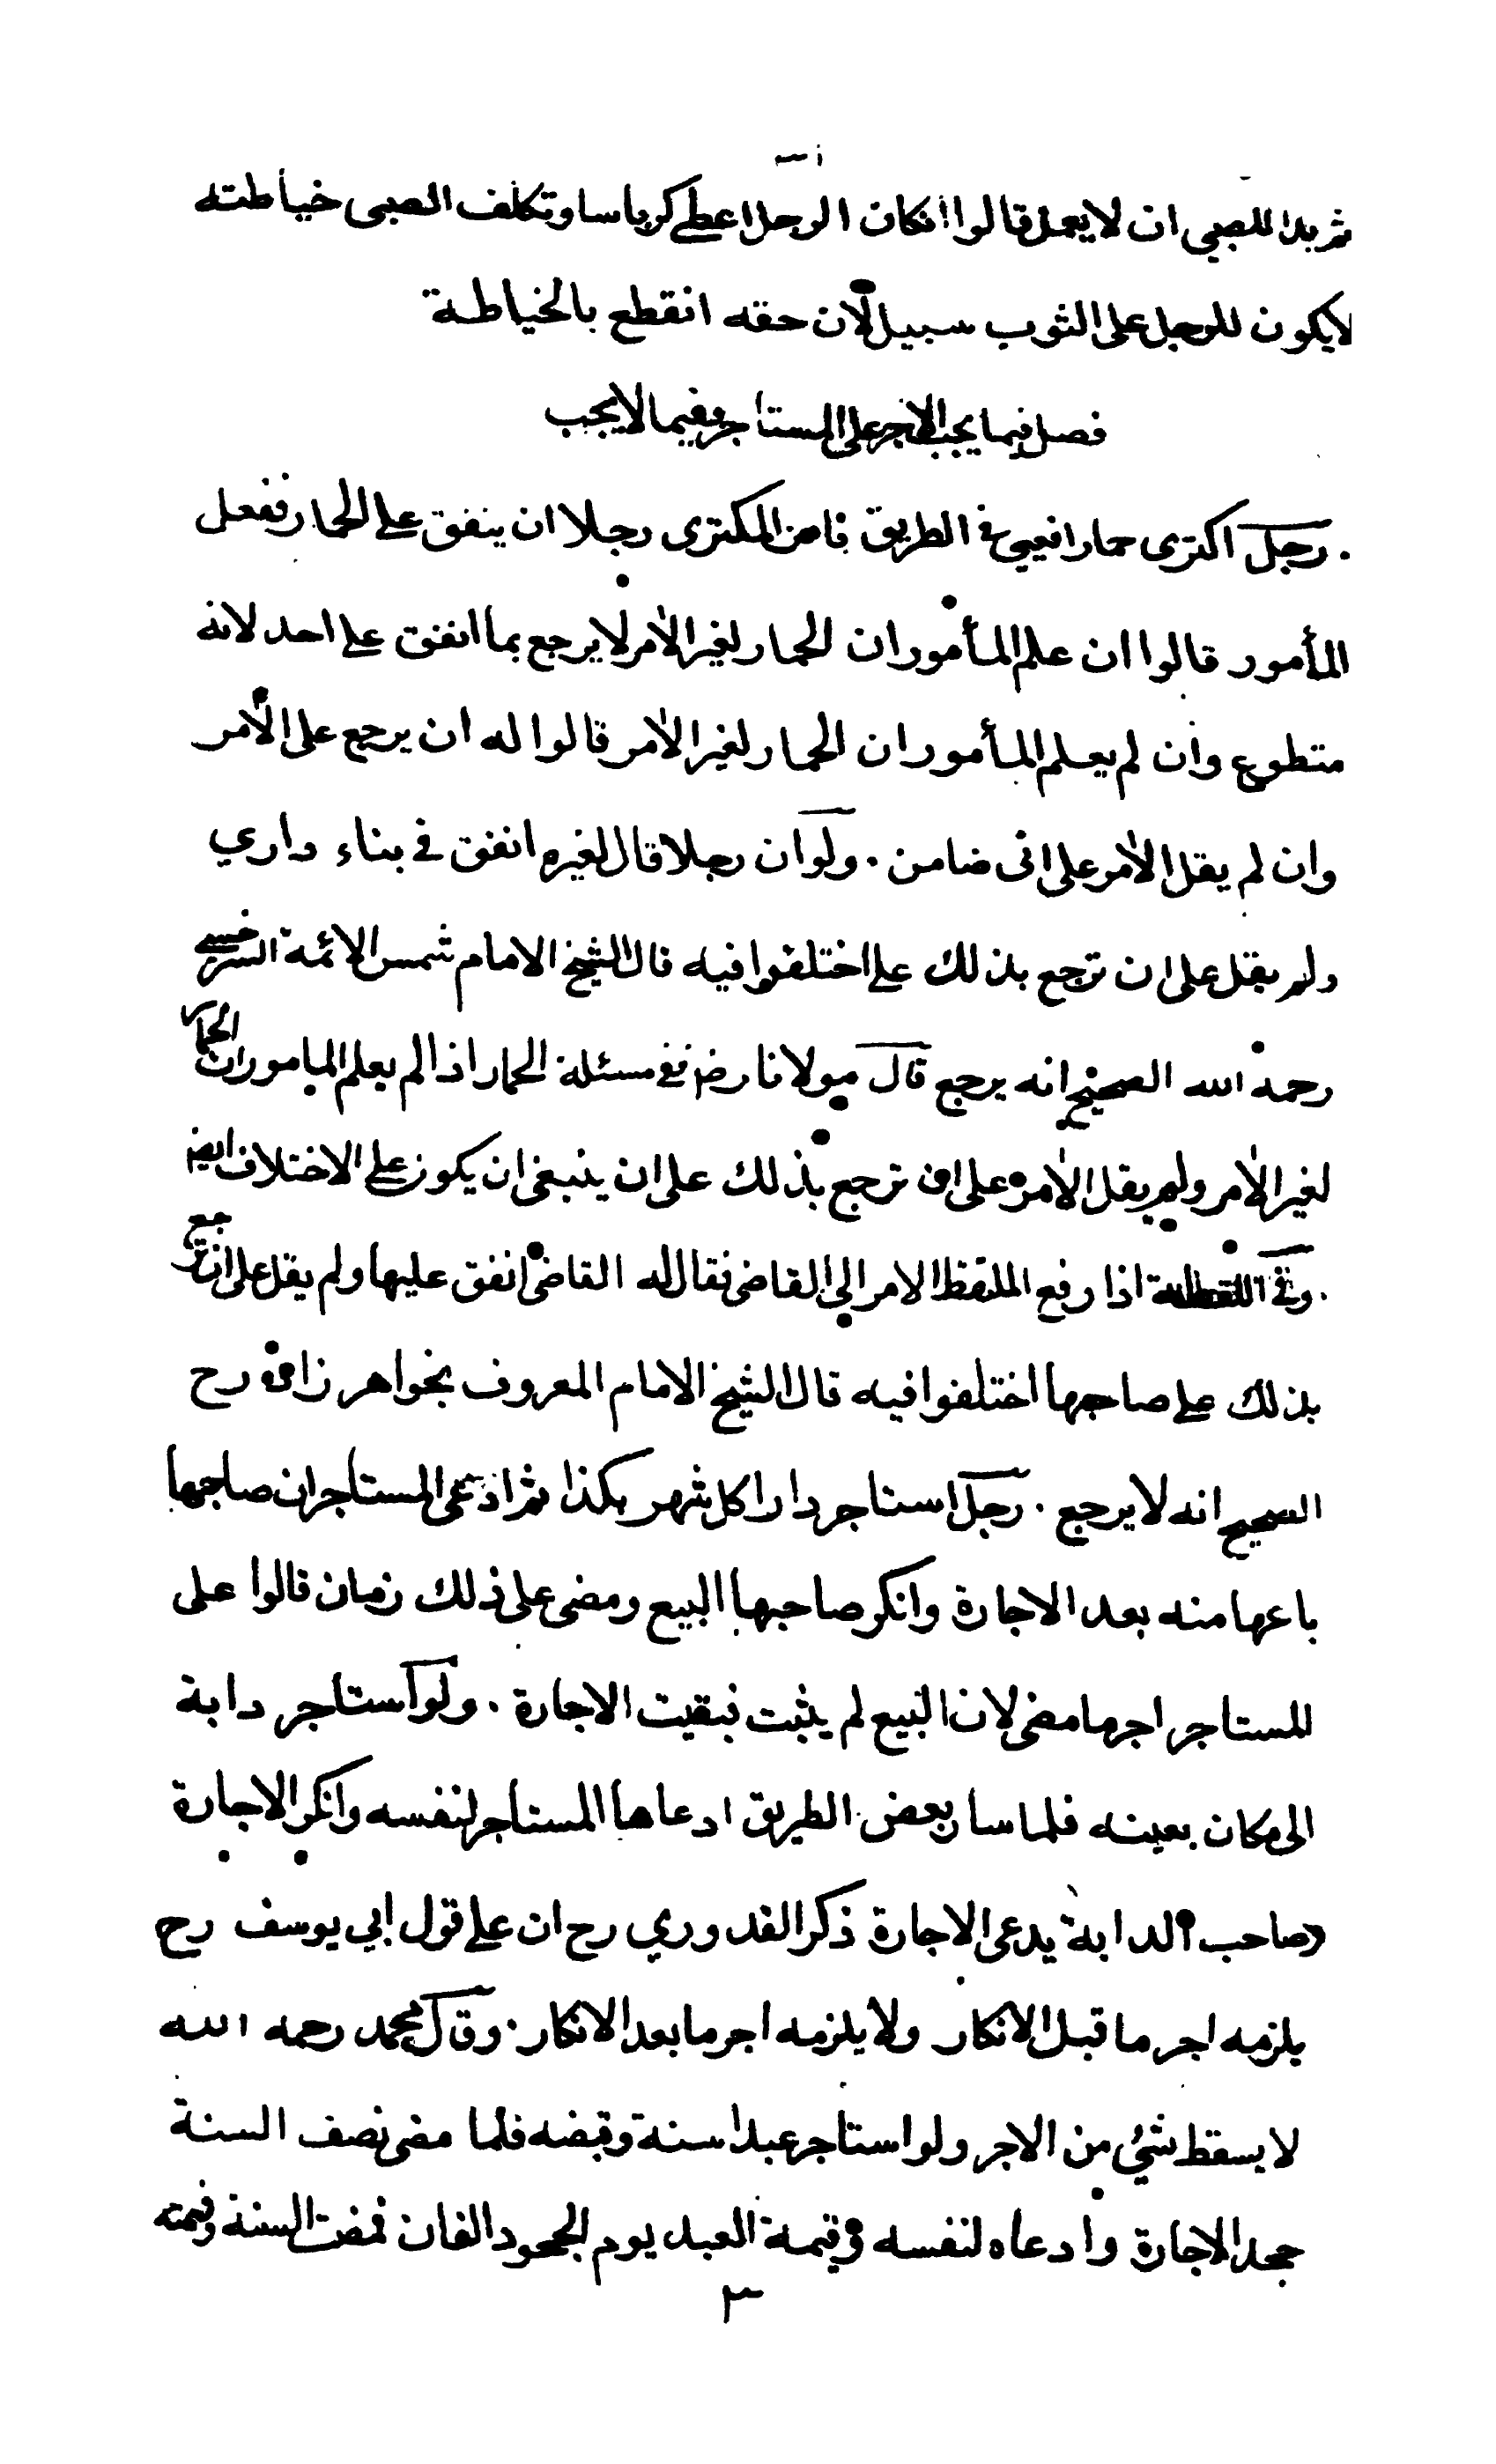 ثم بدا للصبي ان لا يعمل قالوا انكان الرجل اعطى كرباسا وتكلف الصبى خياطته
لا يكون للرجل على الثوب سبيل لان حقه انقطع بالخياطة
فصل فيما يجب الاجر على المستاجر وفيما لا يجب
. رجل اكترى حمارا فعيى في الطريق فامر المكترى رجلا ان ينفق على الحمار ففعل
المأمور قالوا ان علم المأمور ان الحمار لغير الآمر لا يرجع بما انفق على احد لانه
متطوع وان لم يعلم المأمور ان الحمار لغير الآمر قالوا له ان يرجع على الآمر
وان لم يقل الآمر على انى ضامن . ولو ان رجلا قال لغيره انفق في بناء داري
ولم يقل على ان ترجع بذلك على اختلفوا فيه قال الشيخ الامام شمس الائمة السرخسى
رحمة الله الصحيح انه يرجع قال مولانا رضـ ففى مسئلة الحمار اذا لم يعلم المامور ان الحمار
لغير الآمر ولم يقل الآمر على ان ترجع بذلك على ان ينبغى ان يكون على الاختلاف ايضـ
. وفي اللقطة اذا رفع الملتقط الامر الى القاضى فقال له القاضى انفق عليها ولم يقل على ان ترجع
بذلك على صاحبها اختلفوا فيه قال الشيخ الامام المعروف بخواهر زاده رح
الصحيح انه لا يرجع . رجل استاجر دارا كل شهر بكذا ثم ادعى المستاجر ان صاحبها
باعها منه بعد الاجارة وانكر صاحبها البيع ومضى على ذلك زمان قالوا على
المستاجر اجر ما مضى لان البيع لم يثبت فبقيت الاجارة . ولو استاجر دابة
الى مكان بعينه فلما سار بعض الطريق ادعاها المستاجر لنفسه وانكر الاجارة
وصاحب الدابة يدعى الاجارة ذكر القدوري رح ان على قول ابي يوسف رح
يلزمه اجر ما قبل الانكار ولا يلزمه اجر ما بعد الانكار . وقال محمد رحمه الله
لا يسقط شئ من الاجر ولو استاجر عبدا سنة وقبضه فلما مضى نصف السنة
جحد الاجارة وادعاه لنفسه وقيمة العبد يوم الجحود الفان فمضت السنة وقيمته
٣